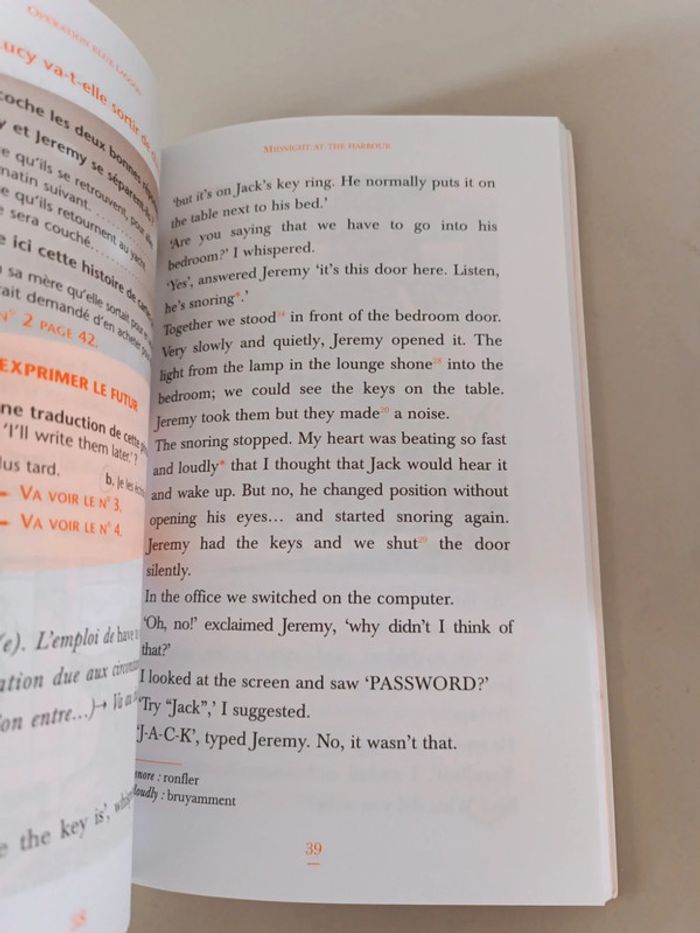 OPERATION BLUE LAGOON
ucy va-t-elle sortir de
coche les deux bonnes
y et Jeremy se séparent
e qu'ils se retrouvent, pour
matin suivant.
e qu'ils retournent au yacht
e sera couché.
e ici cette histoire de
sa mère qu'elle sortait pour
ait demandé d'en acheter
N° 2 PAGE 42.
EXPRIMER LE FUTUR
ne traduction de cette
'I'll write them later.'?
lus tard.
b. Je les
VA VOIR LE N° 3.
VA VOIR LE N° 4.
(e). L'emploi de have
ation due aux
on entre...)→ Va
e the key is',
38
MIDNIGHT AT THE HARBOUR
'but it's on Jack's key ring. He normally puts it on
the table next to his bed.'
'Are you saying that we have to go into his
bedroom?' I whispered.
'Yes', answered Jeremy 'it's this door here. Listen,
he's snoring*.'
Together we stood24 in front of the bedroom door.
Very slowly and quietly, Jeremy opened it. The
light from the lamp in the lounge shone28 into the
bedroom; we could see the keys on the table.
Jeremy took them but they made20 a noise.
The snoring stopped. My heart was beating so fast
and loudly* that I thought that Jack would hear it
and wake up. But no, he changed position without
opening his eyes... and started snoring again.
Jeremy had the keys and we shut29 the door
silently.
In the office we switched on the computer.
'Oh, no!' exclaimed Jeremy, 'why didn't I think of
that?'
I looked at the screen and saw 'PASSWORD?'
'Try "Jack",' I suggested.
'J-A-C-K', typed Jeremy. No, it wasn't that.
snore : ronfler
loudly : bruyamment
39